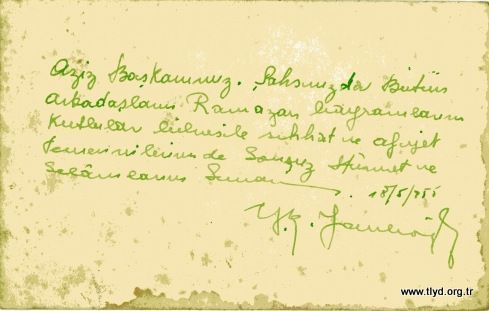 Aziz Başkanımız. Şahsınızda Bütün
arkadaşların Ramazan bayramlarını
Kutlular sıhhat ve afiyet
Temennilerimle Sonsuz Hürmet ve
Selâmlarımı Sunar
www.tlyd.org.tr